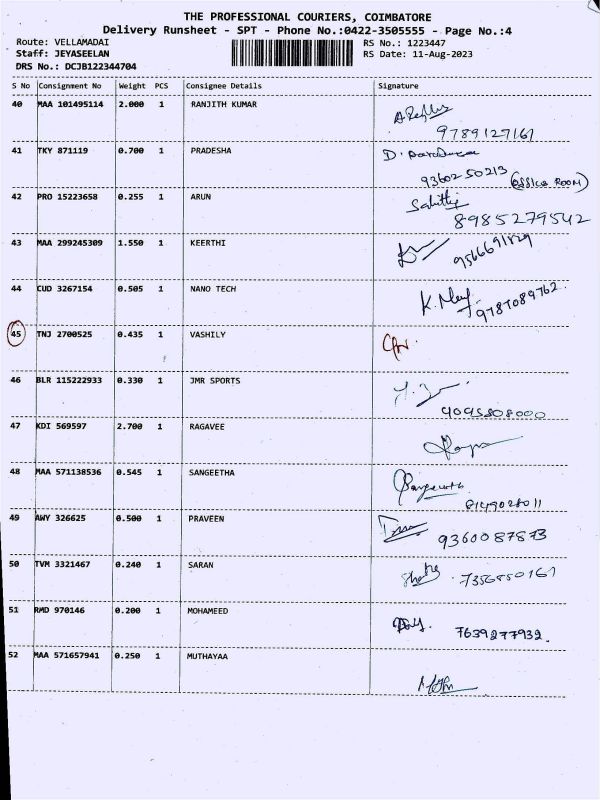 THE PROFESSIONAL COURIERS, COIMBATORE
Delivery Runsheet - SPT - Phone No.:0422-3505555 - Page No.:4
Route: VELLAMADAI RS No.: 1223447
Staff: JEYASEELAN RS Date: 11-Aug-2023
DRS No.: DCJB122344704
S No Consignment No Weight PCS Consignee Details Signature
40 MAA 101495114 2.000 1 RANJITH KUMAR
9789127161
41 TKY 871119 0.700 1 PRADESHA D.
9360250213 (OFFICE ROOM)
42 PRO 15223658 0.255 1 ARUN
8985279542
43 MAA 299245309 1.550 1 KEERTHI
9566691829
44 CUD 3267154 0.505 1 NANO TECH K.
9787089762.
45 TNJ 2700525 0.435 1 VASHILY
46 BLR 115222933 0.330 1 JMR SPORTS
9095808000
47 KDI 569597 2.700 1 RAGAVEE
48 MAA 571138536 0.545 1 SANGEETHA Sangeetha
8149028011
49 AWY 326625 0.500 1 PRAVEEN
9360087873
50 TVM 3321467 0.240 1 SARAN
51 RMD 970146 0.200 1 MOHAMEED
7639277932.
52 MAA 571657941 0.250 1 MUTHAYAA